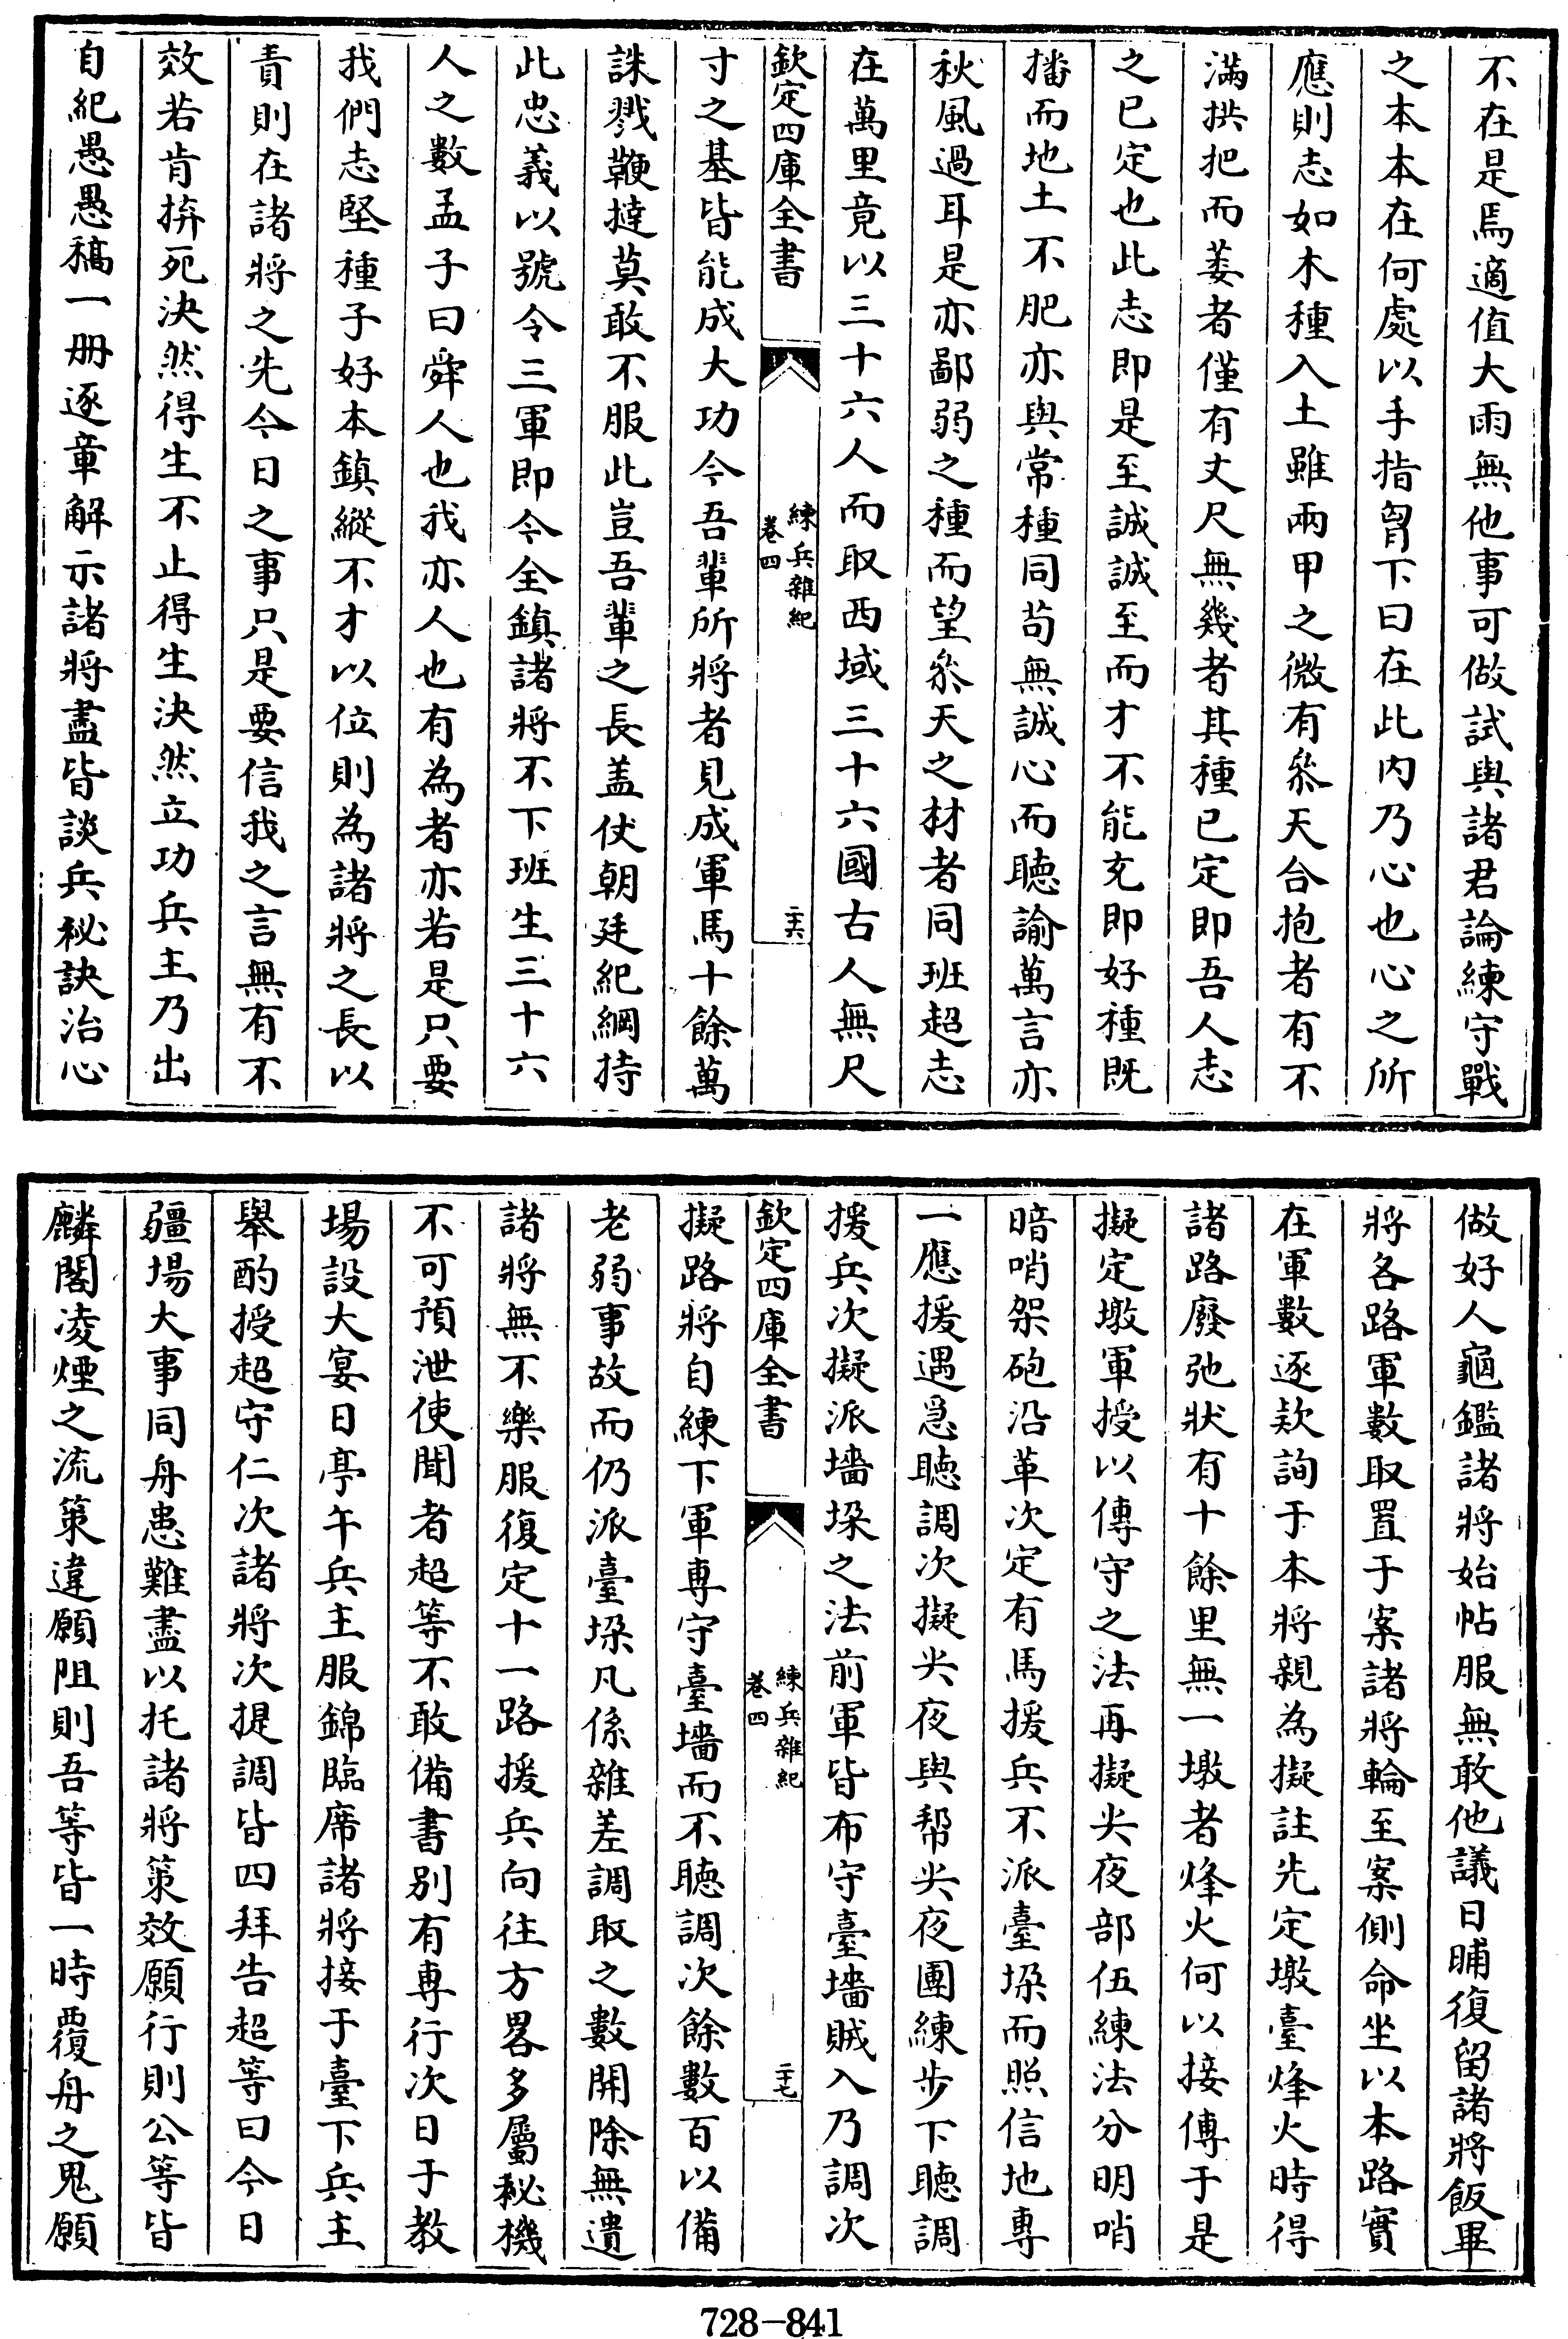 不在是焉適值大雨無他事可做試與諸君論練守戰
之本本在何處以手指胷下曰在此内乃心也心之所
應則志如木種入土雖兩甲之微有叅天合抱者有不
滿拱把而萎者僅有丈尺無幾者其種已定即吾人志
之已定也此志即是至誠誠至而才不能充即好種既
播而地土不肥亦與常種同茍無誠心而聴諭萬言亦
秋風過耳是亦鄙弱之種而望叅天之材者同班超志
在萬里竟以三十六人而取西域三十六國古人無尺
欽定四庫全書
練兵雜紀
卷四
二十六
寸之基皆能成大功今吾輩所將者見成軍馬十餘萬
誅戮鞭撻莫敢不服此豈吾輩之長盖仗朝廷紀綱持
此忠義以號令三軍即令全鎮諸將不下班生三十六
人之數孟子曰舜人也我亦人也有為者亦若是只要
我們志堅種子好本鎮縱不才以位則為諸將之長以
責則在諸將之先今日之事只是要信我之言無有不
效若肯拚死決然得生不止得生決然立功兵主乃出
自紀愚愚稿一册逐章解示諸將盡皆談兵秘訣治心
做好人龜鑑諸將始帖服無敢他議日晡復留諸將飯畢
將各路軍數取置于案諸將輪至案側命坐以本路實
在軍數逐欵詢于本將親為擬註先定墩臺烽火時得
諸路廢弛狀有十餘里無一墩者烽火何以接傳于是
擬定墩軍授以傳守之法再擬尖夜部伍練法分明哨
暗哨架砲沿革次定有馬援兵不派臺垜而照信地専
一應援遇急聴調次擬尖夜與幇尖夜團練步下聴調
援兵次擬派墻垜之法前軍皆布守臺墻賊入乃調次
欽定四庫全書
練兵雜紀
卷四
二十七
擬路將自練下軍専守臺墻而不聴調次餘數百以備
老弱事故而仍派臺垜凡係雜差調取之數開除無遺
諸將無不樂服復定十一路援兵向往方畧多屬秘機
不可預泄使聞者超等不敢備書别有専行次日于教
場設大宴日亭午兵主服錦臨席諸將接于臺下兵主
舉酌授超守仁次諸將次提調皆四拜告超等曰今日
疆場大事同舟患難盡以托諸將策效願行則公等皆
麟閣凌煙之流策違願阻則吾等皆一時覆舟之鬼願
728-841